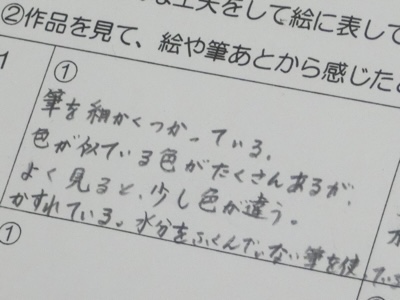 な工夫をして絵に表して
②作品を見て、絵や筆あとから感じたこ
1
①
筆を細かくつかっている。
色が似ている色がたくさんあるが、
よく見ると、少し色が違う。
かすれている。水分をふくんでいない筆を使っている
①